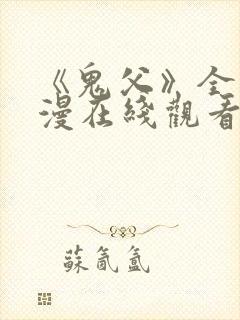 《鬼父》全
漫在綫觀看
蘇氤氳